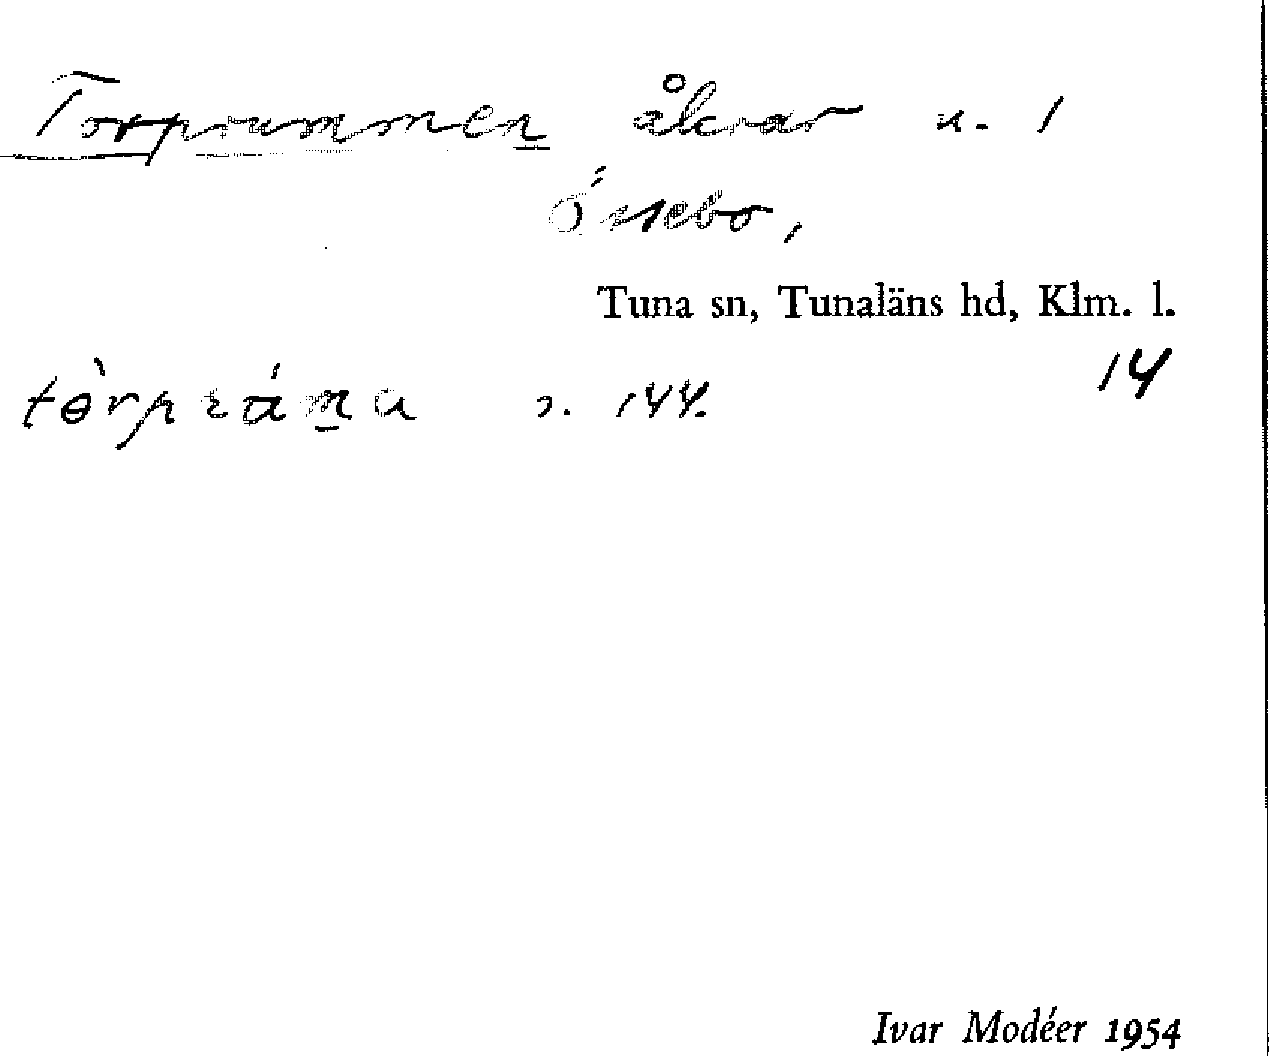 Torprummen åkrar u. 1
Össebo,
Tuna sn, Tunaläns hd, Klm. l.
14
s. 144.
Ivar Modéer 1954